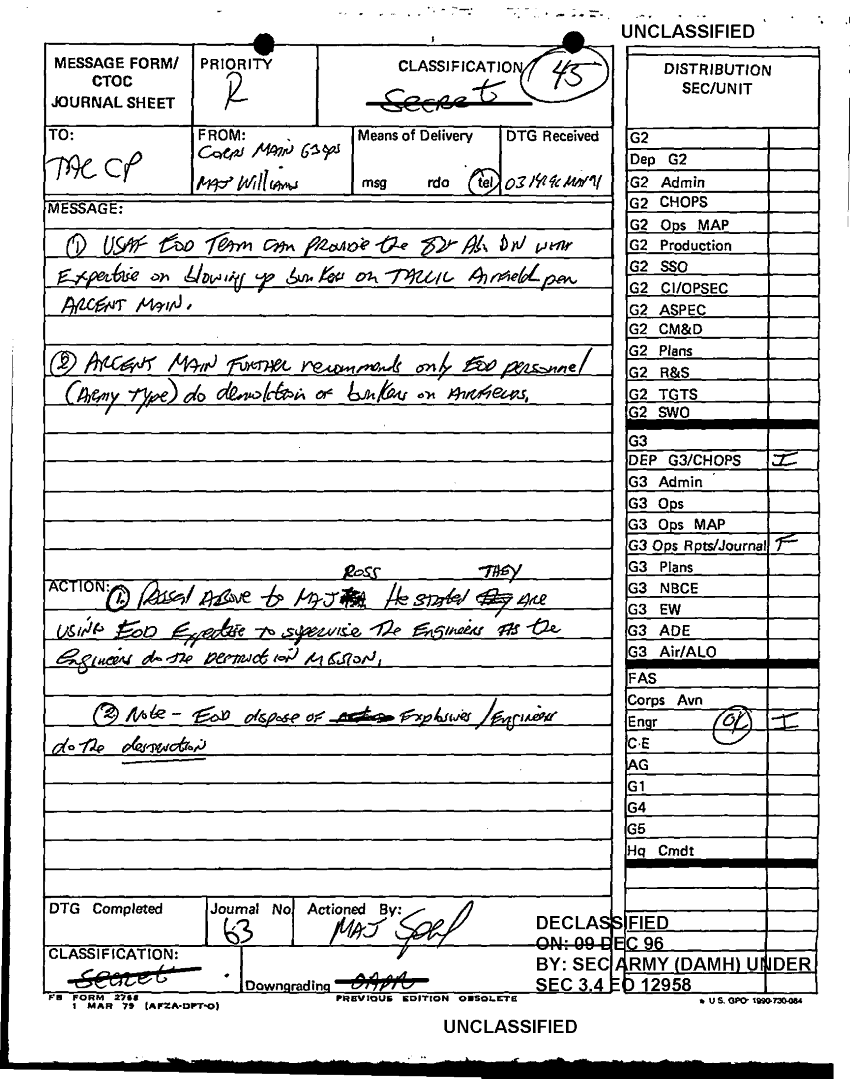 UNCLASSIFIED
MESSAGE FORM/
CTOC
JOURNAL SHEET
PRIORITY
R
CLASSIFICATION
Secret
45
TO:
TAC CP
FROM:
CORPS MAIN G3 OPS
MAJ Williams
Means of Delivery
msg rda tel
DTG Received
MESSAGE:
① USAF EOD TEAM CAN PROVIDE the 82d Ab DIV WITH
Expertise on blowing up bunkers on TALLIL Airfield per
ARCENT MAIN.
② ARCENT MAIN FURTHER recommends only EOD personnel
(Army Type) do demolition of bunkers on AIRFIELDS.
ROSS THEY
ACTION: ① Passed Above to MAJ He stated ARE
USING EOD Expertise to supervise The Engineers AS the
Engineers do the DESTRUCTION MISSION.
② Note - EOD dispose of Explosives / Engineers
do The destruction
DTG Completed
Journal No
63
Actioned By:
MAJ
CLASSIFICATION:
Secret
Downgrading OADR
FB FORM 2768
1 MAR 79 (AFZA-DPT-O)
PREVIOUS EDITION OBSOLETE
DISTRIBUTION
SEC/UNIT
G2
Dep G2
G2 Admin
G2 CHOPS
G2 Ops MAP
G2 Production
G2 SSO
G2 CI/OPSEC
G2 ASPEC
G2 CM&D
G2 Plans
G2 R&S
G2 TGTS
G2 SWO
G3
DEP G3/CHOPS I
G3 Admin
G3 Ops
G3 Ops MAP
G3 Ops Rpts/Journal F
G3 Plans
G3 NBCE
G3 EW
G3 ADE
G3 Air/ALO
FAS
Corps Avn
Engr OK I
C-E
AG
G1
G4
G5
Hq Cmdt
DECLASSIFIED
ON: 09 DEC 96
BY: SEC ARMY (DAMH) UNDER
SEC 3.4 EO 12958
U S. GPO: 1990-730-084
UNCLASSIFIED